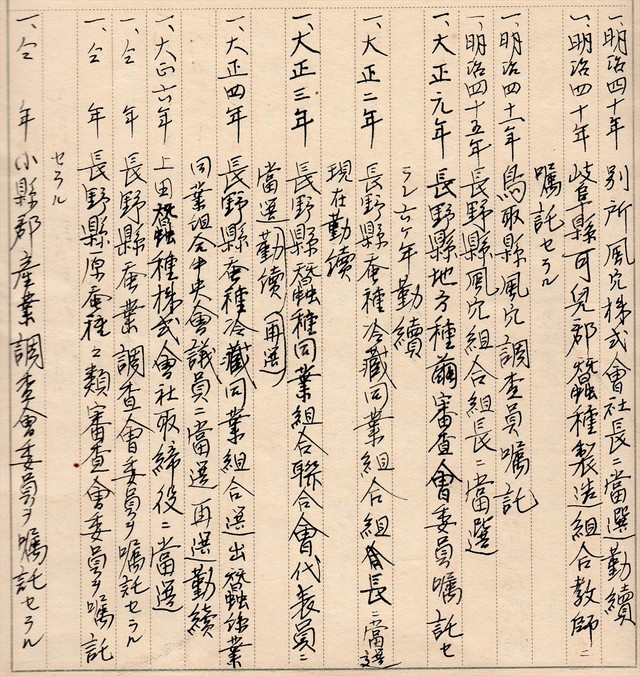 一、明治四十年 別所風穴株式會社長ニ當選勤續
一、明治四十年 岐阜縣可兒郡蠶種製造組合教師ニ
囑託セラル
一、明治四十一年 鳥取縣風穴調査員囑託
一、明治四十五年 長野縣風穴組合長ニ當選
一、大正元年 長野縣地方種繭審査會委員囑託セ
ラレ六ヶ年勤續
一、大正二年 長野縣蚕種冷藏同業組合組合長ニ當選
現在勤續
一、大正三年 長野縣蠶種同業組合聯合會代表員ニ
當選勤續(再選)
一、大正四年 長野縣蚕種冷藏同業組合選出蠶絲業
同業組合中央會議員ニ當選再選勤續
一、大正六年 上田蠶種株式會社取締役ニ當選
一、仝年 長野縣蚕業調査會委員ヲ囑託セラル
一、仝年 長野縣原蚕種々類審査會委員ヲ囑託
セラル
一、仝年 小縣郡産業調査會委員ヲ囑託セラル